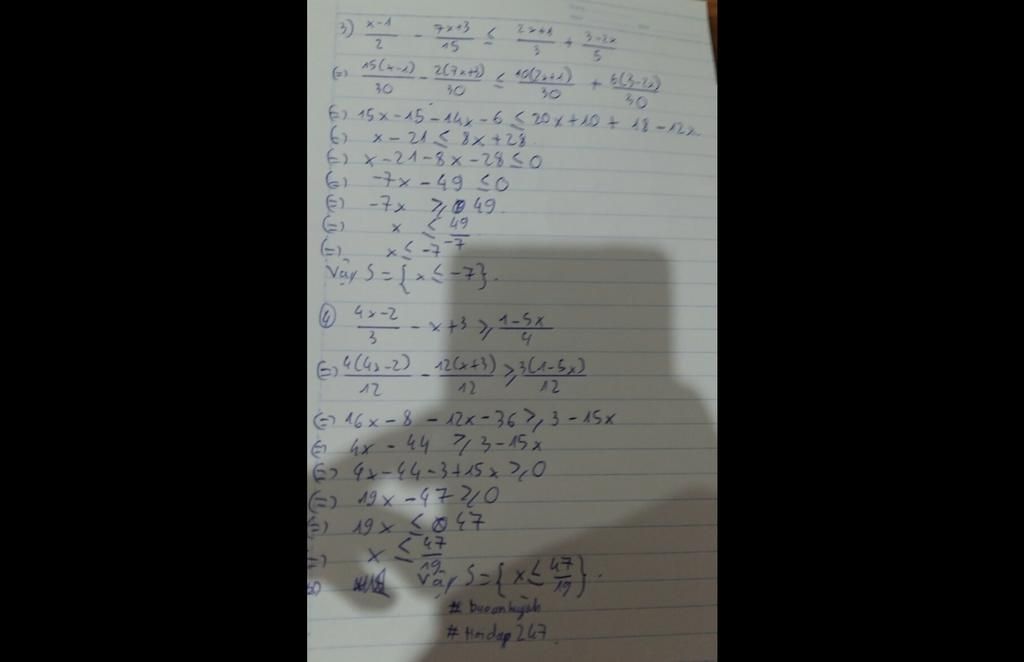 3) \frac{x-1}{2} - \frac{7x+3}{15} ≤ \frac{2x+1}{3} + \frac{3-2x}{5}
(=) \frac{15(x-1)}{30} - \frac{2(7x+3)}{30} ≤ \frac{10(2x+1)}{30} + \frac{6(3-2x)}{30}
(=) 15x-15-14x-6 ≤ 20x+10+18-12x
(=) x-21 ≤ 8x+28
(=) x-21-8x-28 ≤ 0
(=) -7x-49 ≤ 0
(=) -7x ≥ 49.
(=) x ≤ \frac{49}{-7}
(=) x ≤ -7
Vậy S={x ≤ -7}.
④ \frac{4x-2}{3} - x+3 ≥ \frac{1-5x}{4}
(=) \frac{4(4x-2)}{12} - \frac{12(x+3)}{12} ≥ \frac{3(1-5x)}{12}
(=) 16x-8-12x-36 ≥ 3-15x
(=) 4x-44 ≥ 3-15x
(=) 4x-44-3+15x ≥ 0
(=) 19x-47 ≥ 0
(=) 19x ≤ 47
(=) x ≤ \frac{47}{19}
Vậy S={x ≤ \frac{47}{19}}.
# Hoidap247